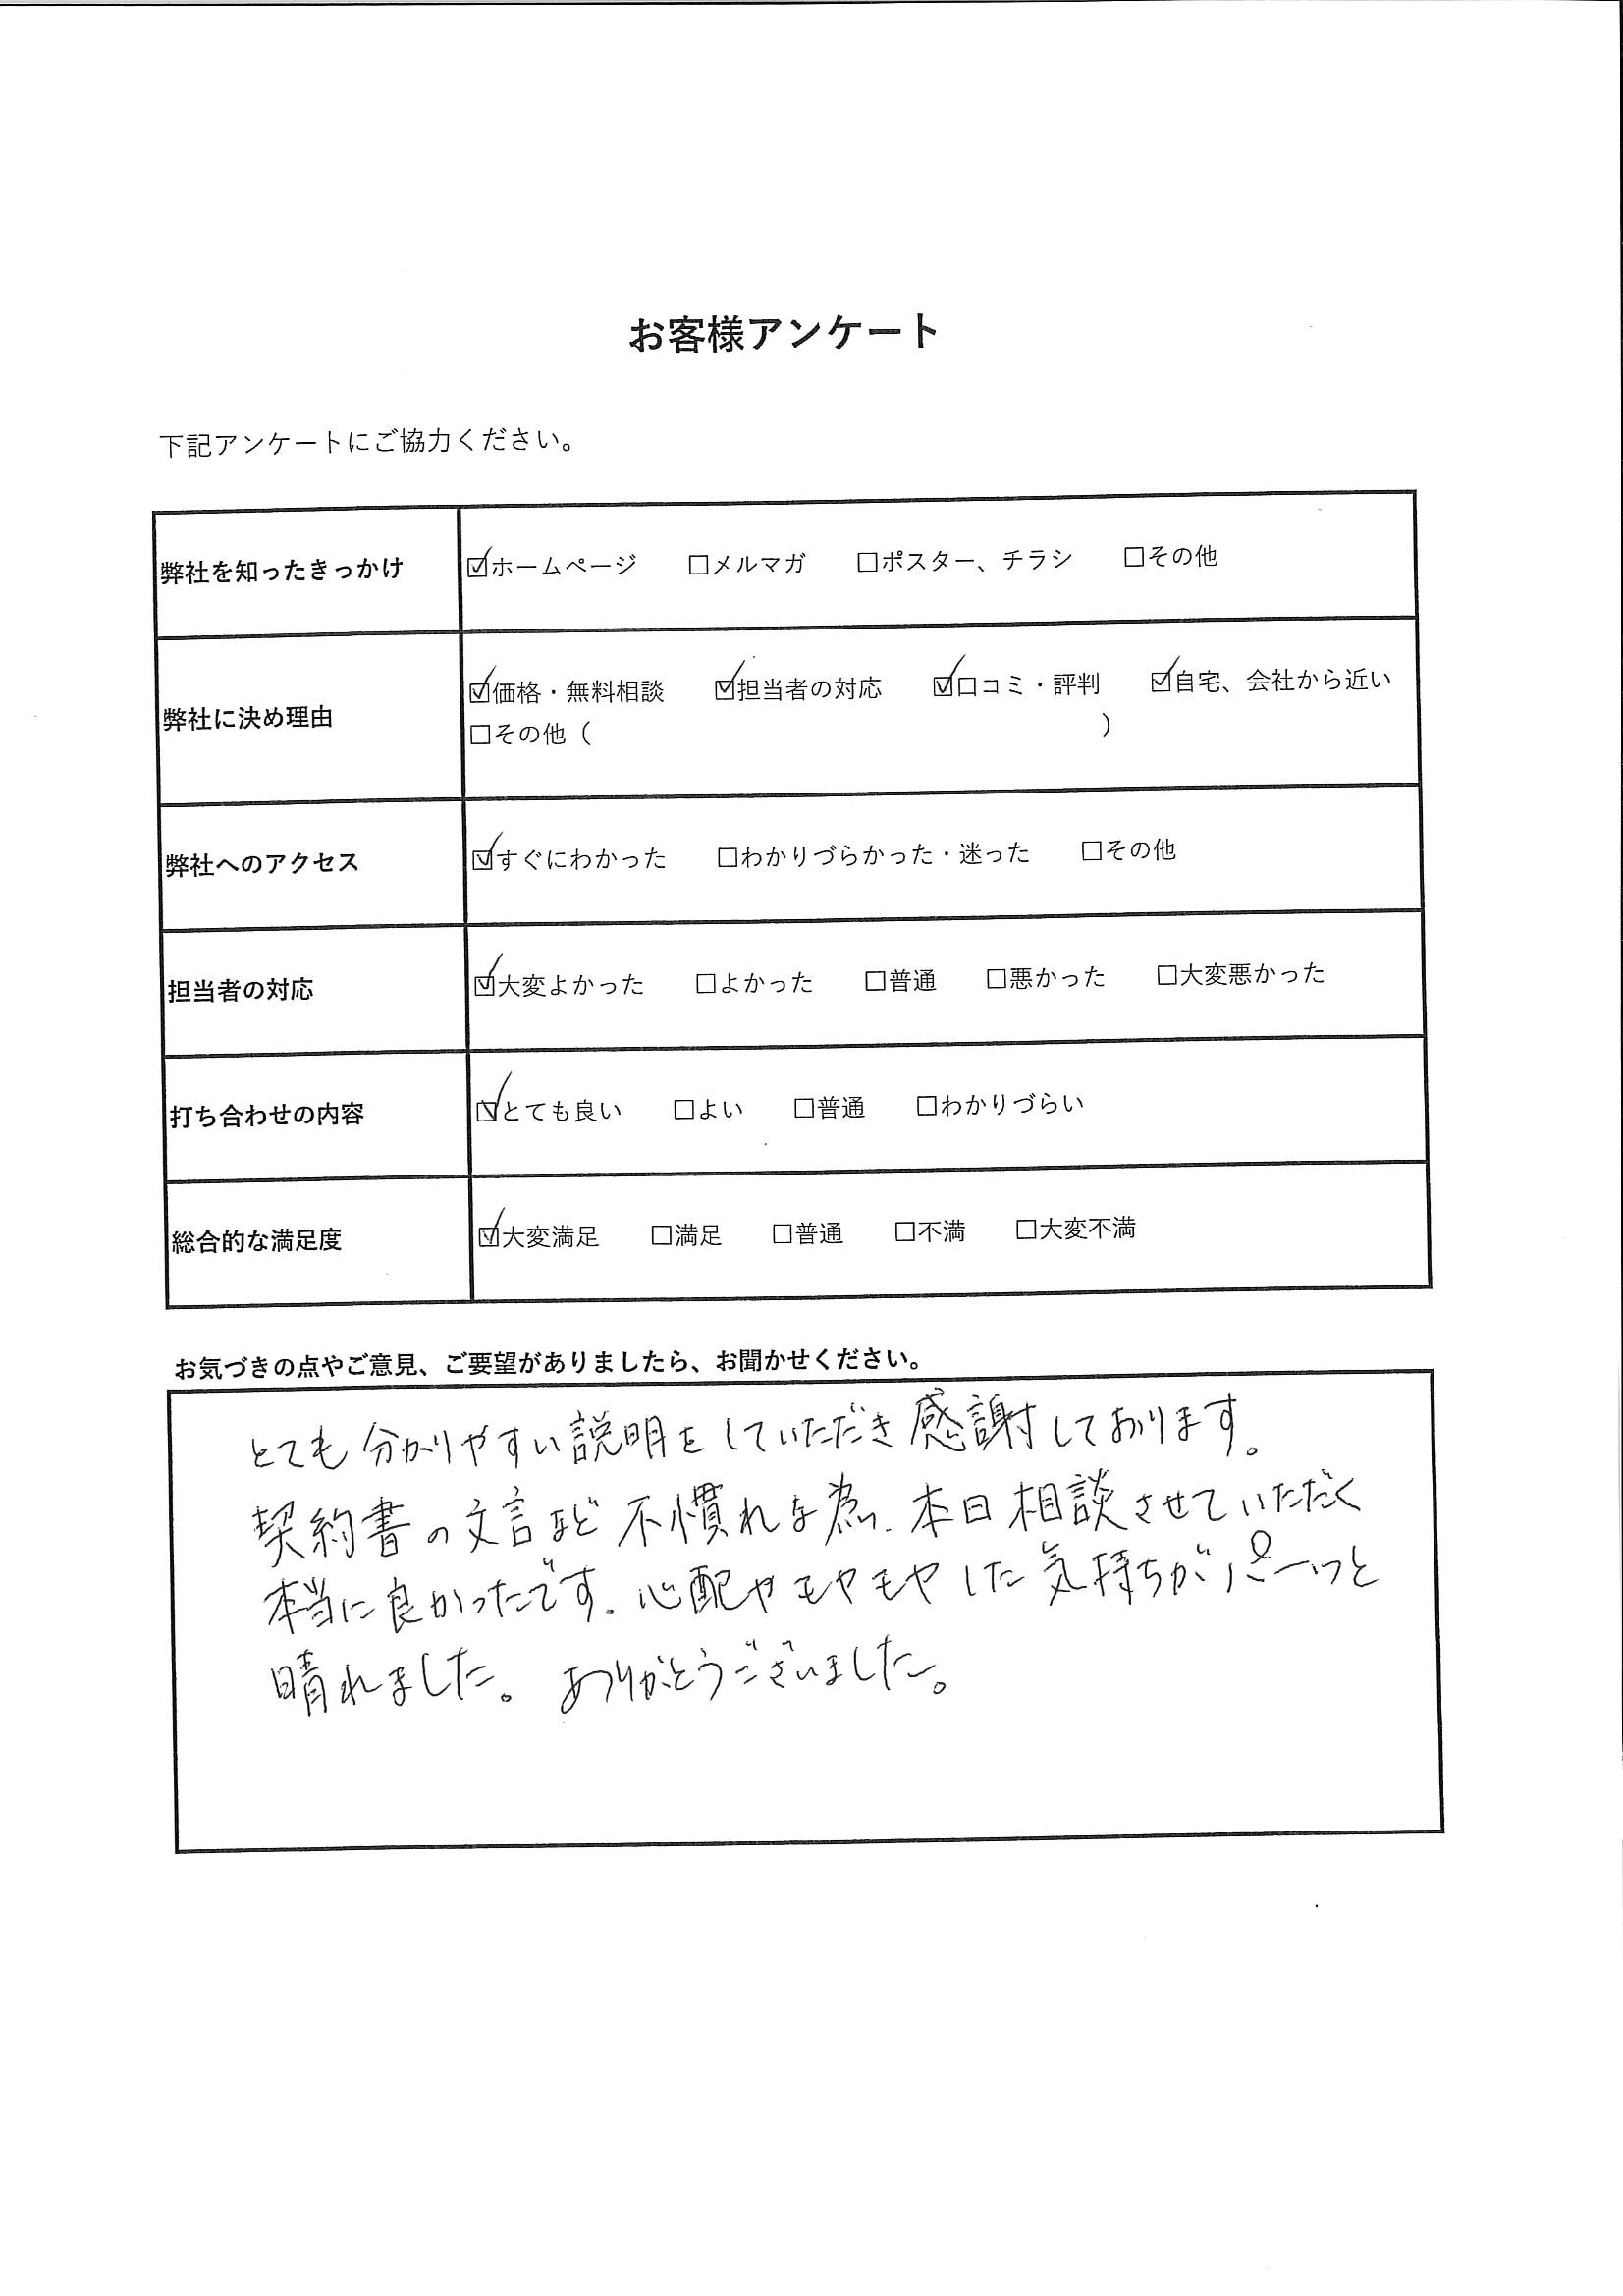 お客様アンケート
下記アンケートにご協力ください。
弊社を知ったきっかけ ☑ホームページ □メルマガ □ポスター、チラシ □その他
弊社に決め理由 ☑価格・無料相談 ☑担当者の対応 ☑口コミ・評判 ☑自宅、会社から近い
□その他（ ）
弊社へのアクセス ☑すぐにわかった □わかりづらかった・迷った □その他
担当者の対応 ☑大変よかった □よかった □普通 □悪かった □大変悪かった
打ち合わせの内容 ☑とても良い □よい □普通 □わかりづらい
総合的な満足度 ☑大変満足 □満足 □普通 □不満 □大変不満
お気づきの点やご意見、ご要望がありましたら、お聞かせください。
とても分かりやすい説明をしていただき感謝しております。
契約書の文言など不慣れな為、本日相談させていただく
本当に良かったです。心配やモヤモヤした気持ちがパーッと
晴れました。ありがとうございました。